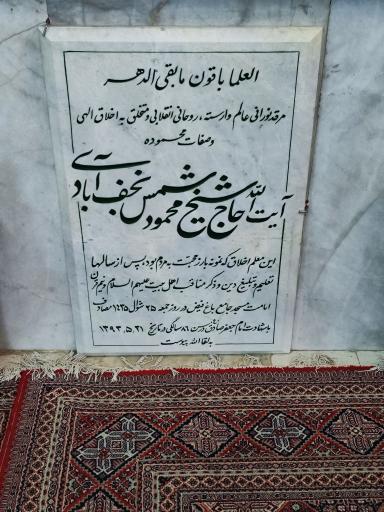 العلما باقون مابقی الدهر
مرقد نورانی عالم وارسته، روحانی انقلابی و متخلق به اخلاق الهی
و صفات محموده
آیت الله حاج شیخ محمود شمس نجف آبادی
این معلم اخلاق که نمونه بارز محبت به مردم بود، پس از سالها
تعلیم و تبلیغ دین و ذکر مناقب اهل بیت علیهم السلام و نیم قرن
امامت مسجد جامع باغ فیض در روز جمعه ۲۵ شوال ۱۴۳۵ مصادف
با شهادت امام جعفر صادق در سن ۸۶ سالگی و تاریخ ۱۳۹۳.۵.۳۱
به لقاءالله پیوست